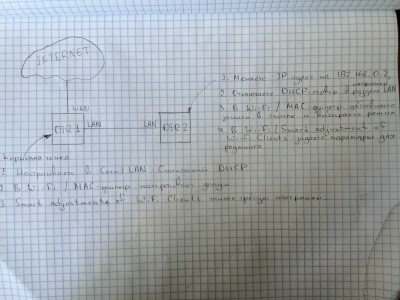 INTERNET
WAN
DIR 1
LAN
LAN
DIR 2
1. Меняем IP адрес на 192.168.0.2,
2. Отключаем DHCP сервер в разделе LAN
3. В Wi-Fi / MAC-фильтр добавляем
записи в список и выбираем режим
4. В Wi-Fi / Smart adjustment of
Wi-Fi Clients задаем параметры для
роуминга.
1 Настраиваем в Сеть / LAN Статический DHCP
2 В Wi-Fi / MAC-фильтр настраиваем доступ
3 Smart adjustments of Wi-Fi Clients настройки.